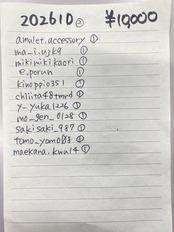 202610② ¥10,000
amulet.accessory ①
ma_i.uzk9 ①
mikimikikaori ①
e.porun ①
kinoppio351 ①
chliita48tmrd ①
y_yuka1226 ①
mo_gen_0128 ①
sakisaki_987 ①
tomo_yamo813 ①
maekana.kuu14 ①